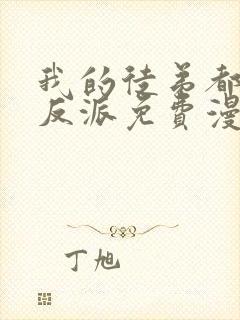 我的徒弟都
反派免費漫
丁旭